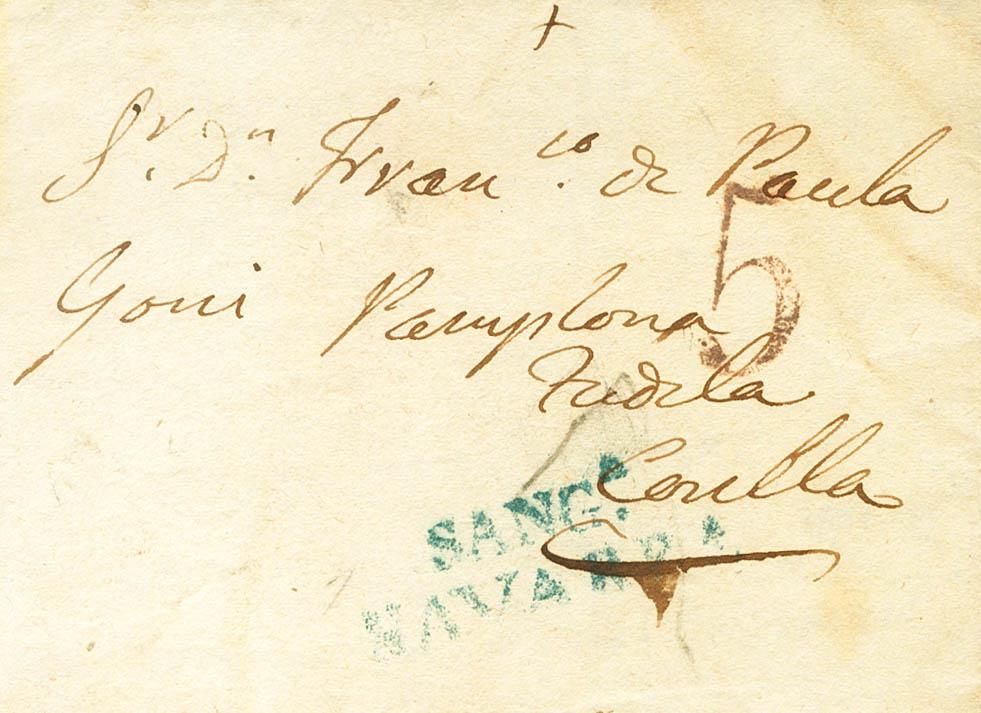 +
Sr. Dn. Franco. de Paula
5
Goñi Pamplona
Tudela
Corella
SANG.A
NAVARRA.